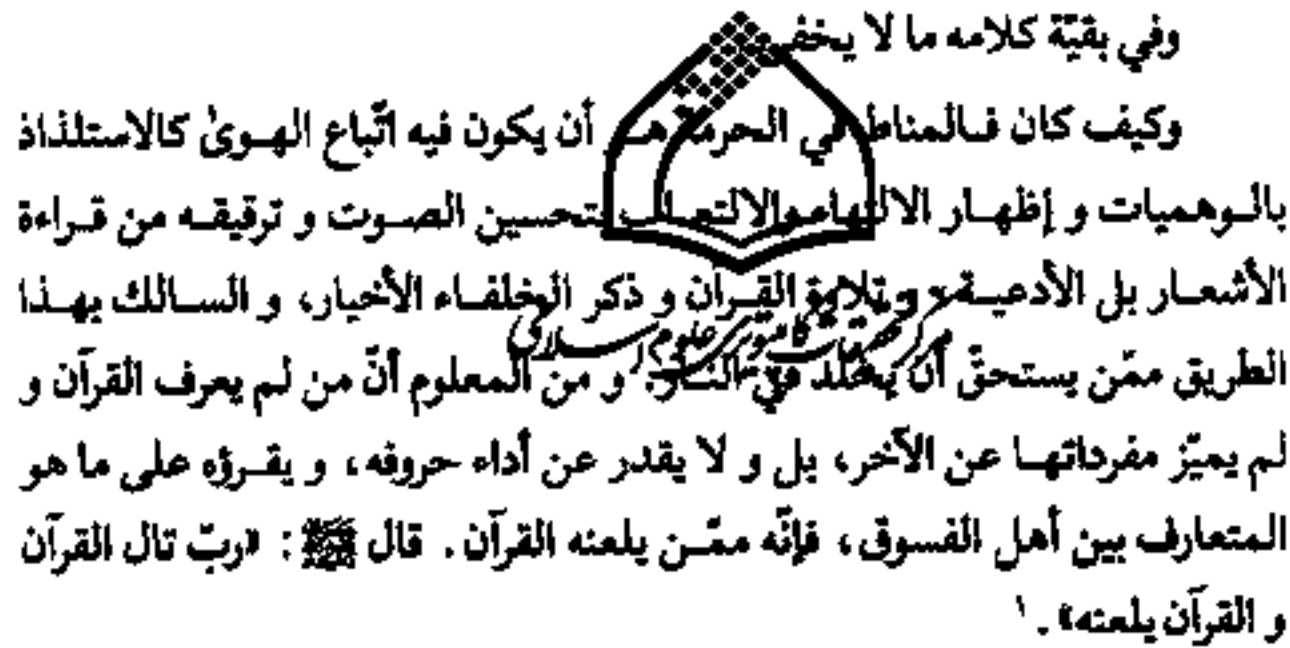 وفي بقيّة كلامه ما لا يخفى
وكيف كان فالمناط في الحرمة هو أن يكون فيه اتّباع الهوىٰ كالاستلذاذ
بالوهميات و إظهار الالتهاء والالتعاب بتحسين الصوت و ترقيقه من قراءة
الأشعار بل الأدعية و تلاوة القرآن و ذكر الخلفاء الأخيار، و السالك بهذا
مركز تحقيقات كامپيوترى علوم اسلامى
الطريق ممّن يستحقّ أن يخلد في النار. و من المعلوم أنّ من لم يعرف القرآن و
لم يميّز مفرداتها عن الآخر، بل و لا يقدر عن أداء حروفه، و يقرؤه على ما هو
المتعارف بين أهل الفسوق، فإنّه ممّن يلعنه القرآن. قال ﷺ: «ربّ تال القرآن
و القرآن يلعنه». ١